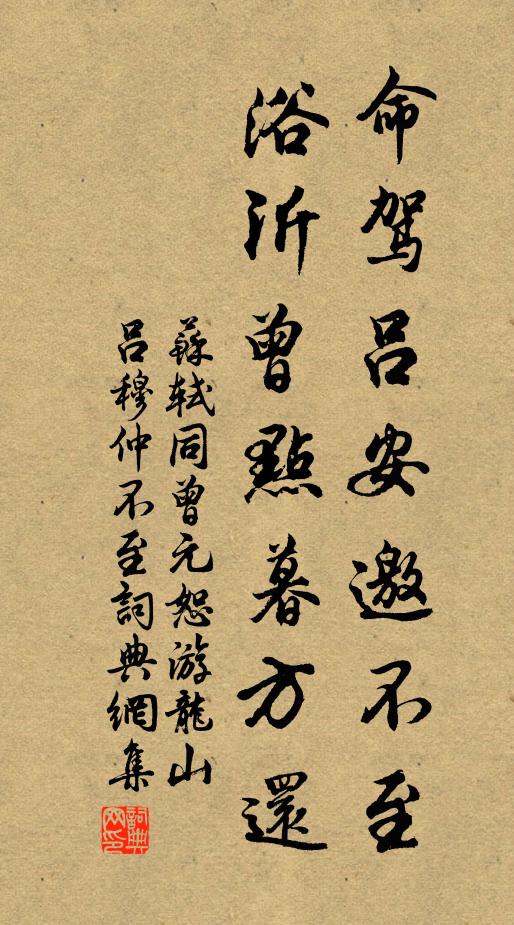 命駕呂安邀不至
浴沂曾點暮方還
蘇軾同曾元恕游龍山
呂穆仲不至詞典網集
詞典
网印